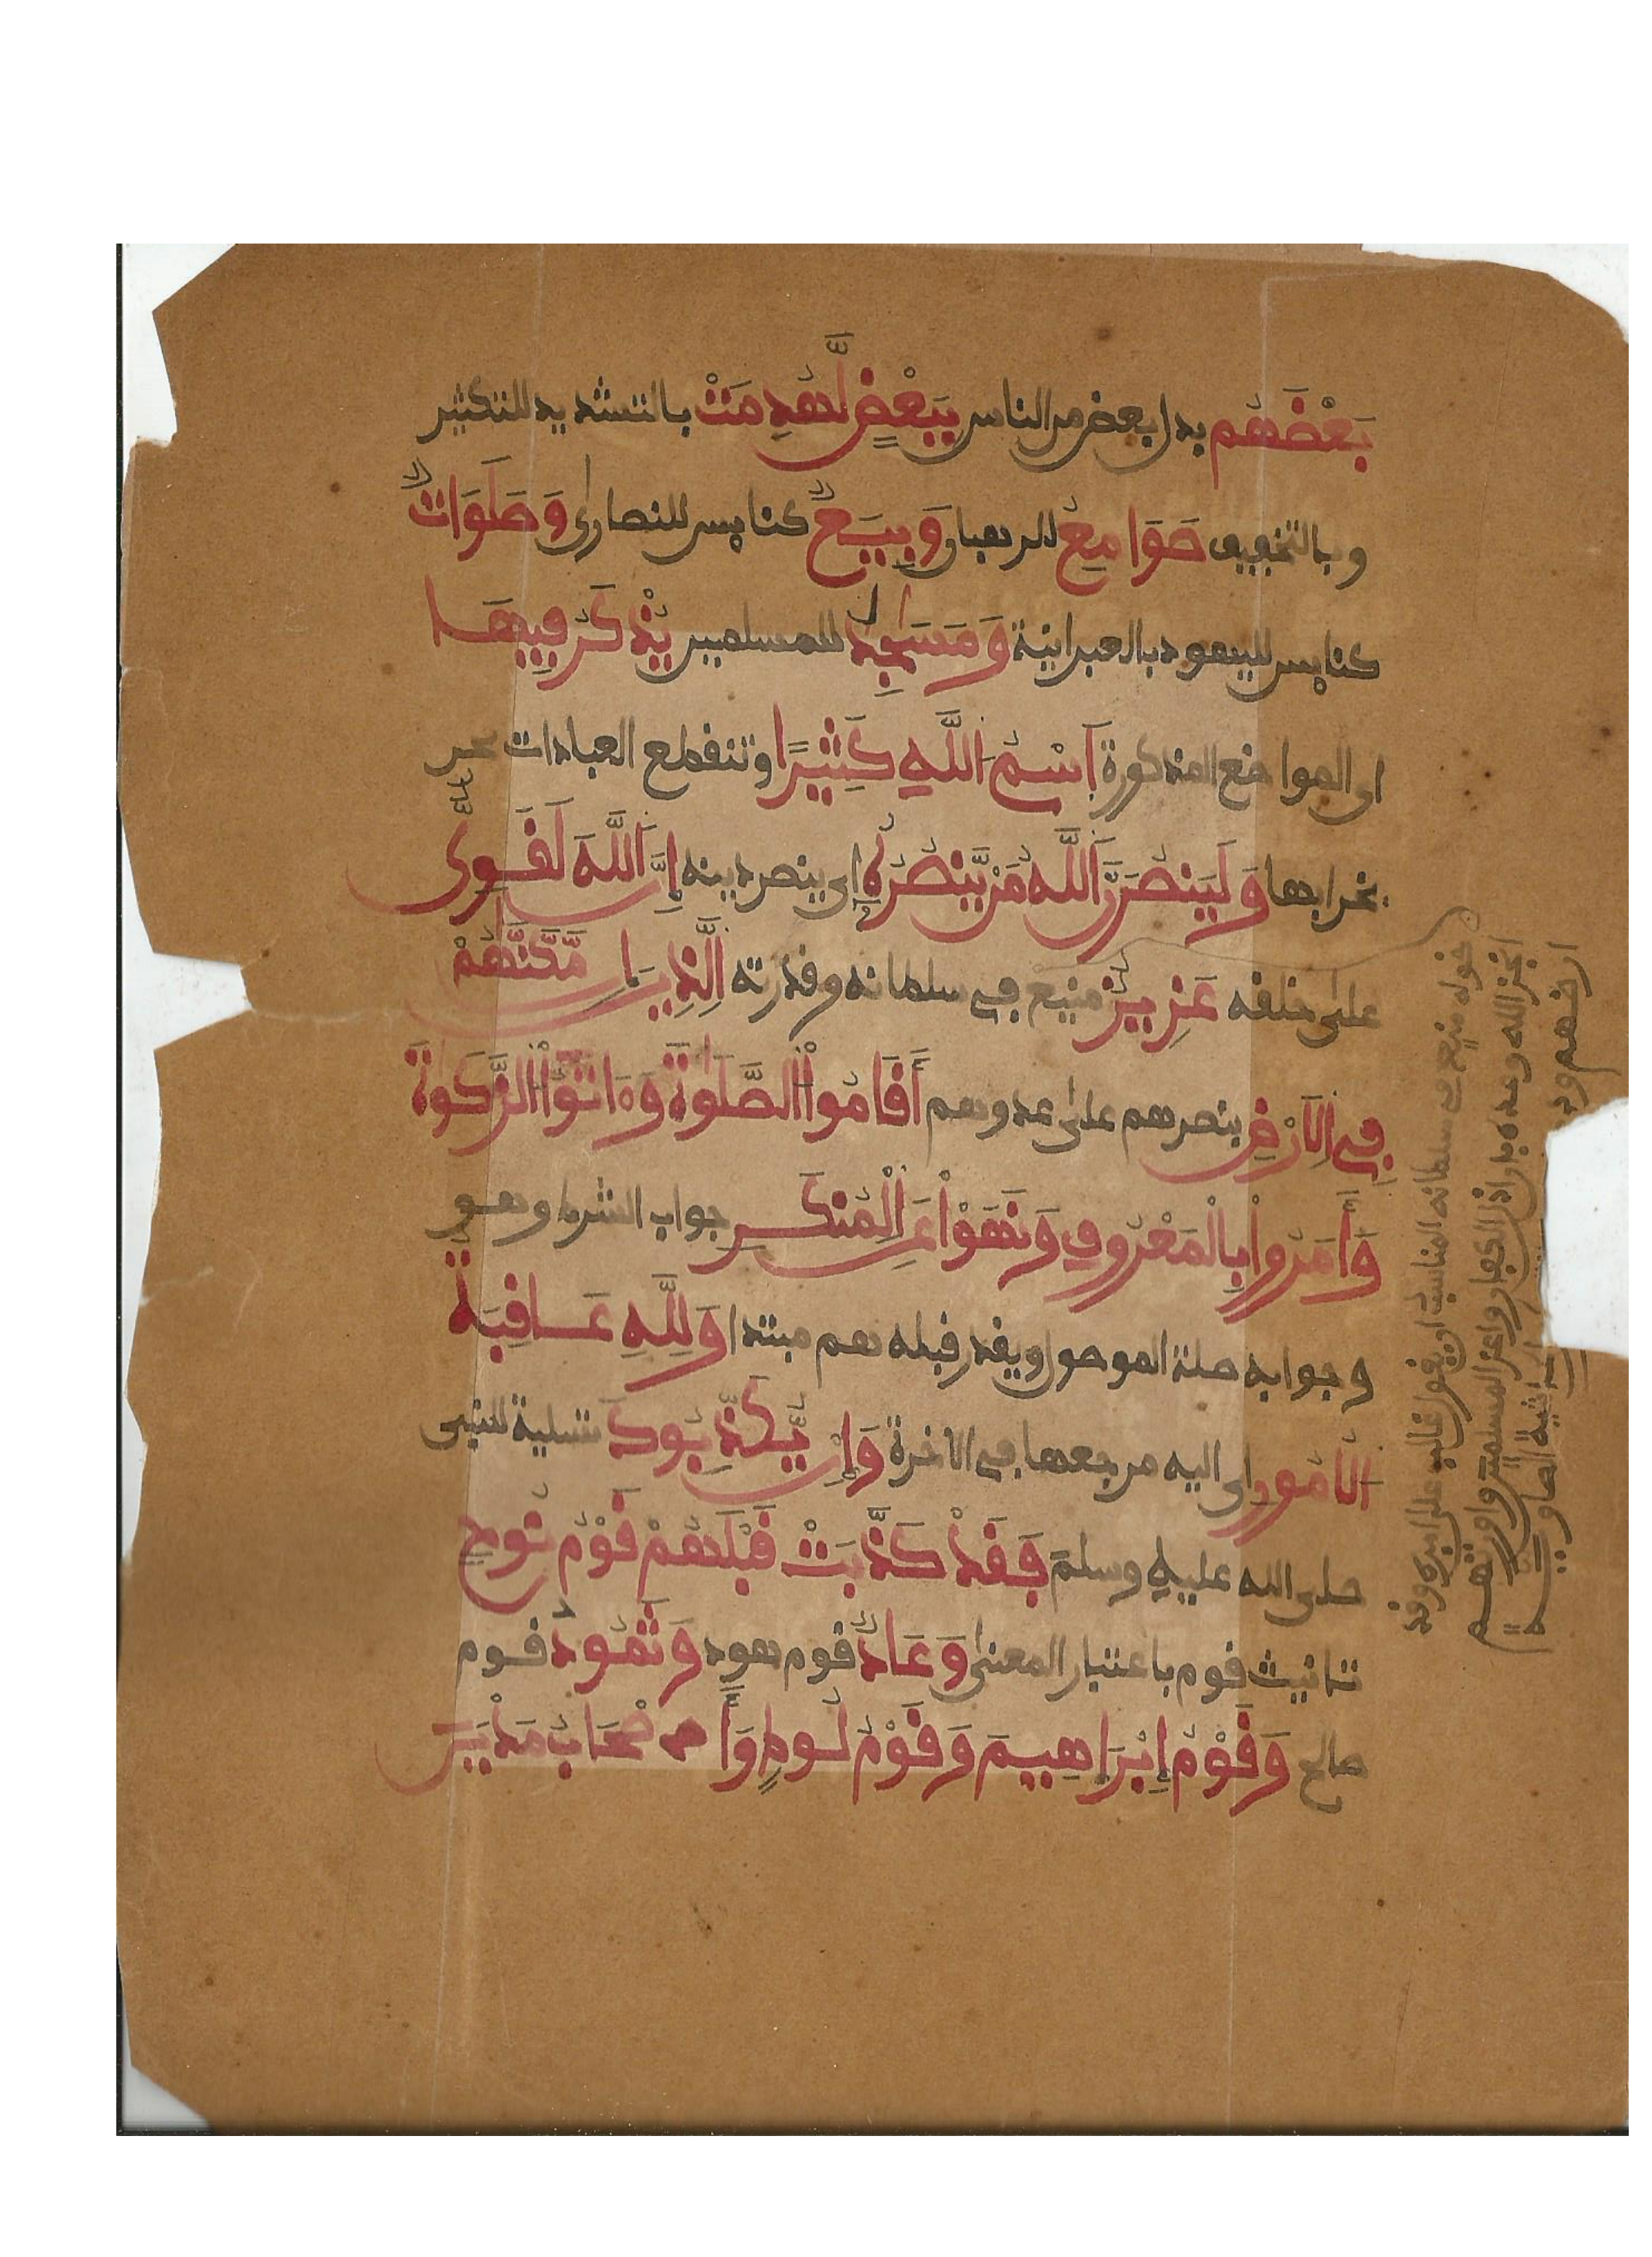 بَعْضَهُم بدل بعض من الناس بِبَعْضٍ لَّهُدِّمَتْ بالتشديد للتكثير
وبالتخفيف صَوَامِعُ للرهبان وَبِيَعٌ كنايس للنصارى وَصَلَوَاتٌ
كنايس لليهود بالعبرانية وَمَسَٰجِدُ للمسلمين يُذْكَرُ فِيهَا
اى المواضع المذكورة اَسْمُ اللَّهِ كَثِيرًا وتنقطع العبادات عن
بخرابها وَلَيَنصُرَنَّ اَللَّهُ مَنْ يَّنصُرُهُ اى ينصر دينه إِنَّ اَللَّهَ لَقَوِى
على خلقه عَزِيزٌ منيع في سلطانه وقدرته الَّذِينَ إِن مَّكَّنَّهُمْ
فِى الَارْضِ بنصرهم على عدوهم أَقَامُواْ الصَّلَوٰةَ وَءَاتَوُاْ الزَّكَوٰةَ
وَأَمَرُواْ بِالْمَعْرُوفِ وَنَهَوْاْ عَنِ الْمُنكَرِ جواب الشرط وهو
وجوابه صلة الموصول ويقدر قبله هم مبتدا وَلِلَّهِ عَاقِبَةُ
الُامُورِ اى اليه مرجعها في الاخرة وَإِنْ يُّكَذِّبُوكَ تسلية للنبى
صلى الله عليه وسلم فَقَدْ كَذَّبَتْ قَبْلَهُمْ قَوْمُ نُوحٍ
تانيث قوم باعتبار المعنى وَعَادٌ قوم هود وَثَمُودُ قوم
صالح وَقَوْمُ إِبْرَاهِيمَ وَقَوْمُ لُوطٍ وَأَصْحَابُ مَدْيَنَ
قوله منيع في سلطانه المناسب ان يقول غالب على امره وقد
انجز الله وعده بان اذل الكفار واعز المسلمين واورثهم
ارضهم